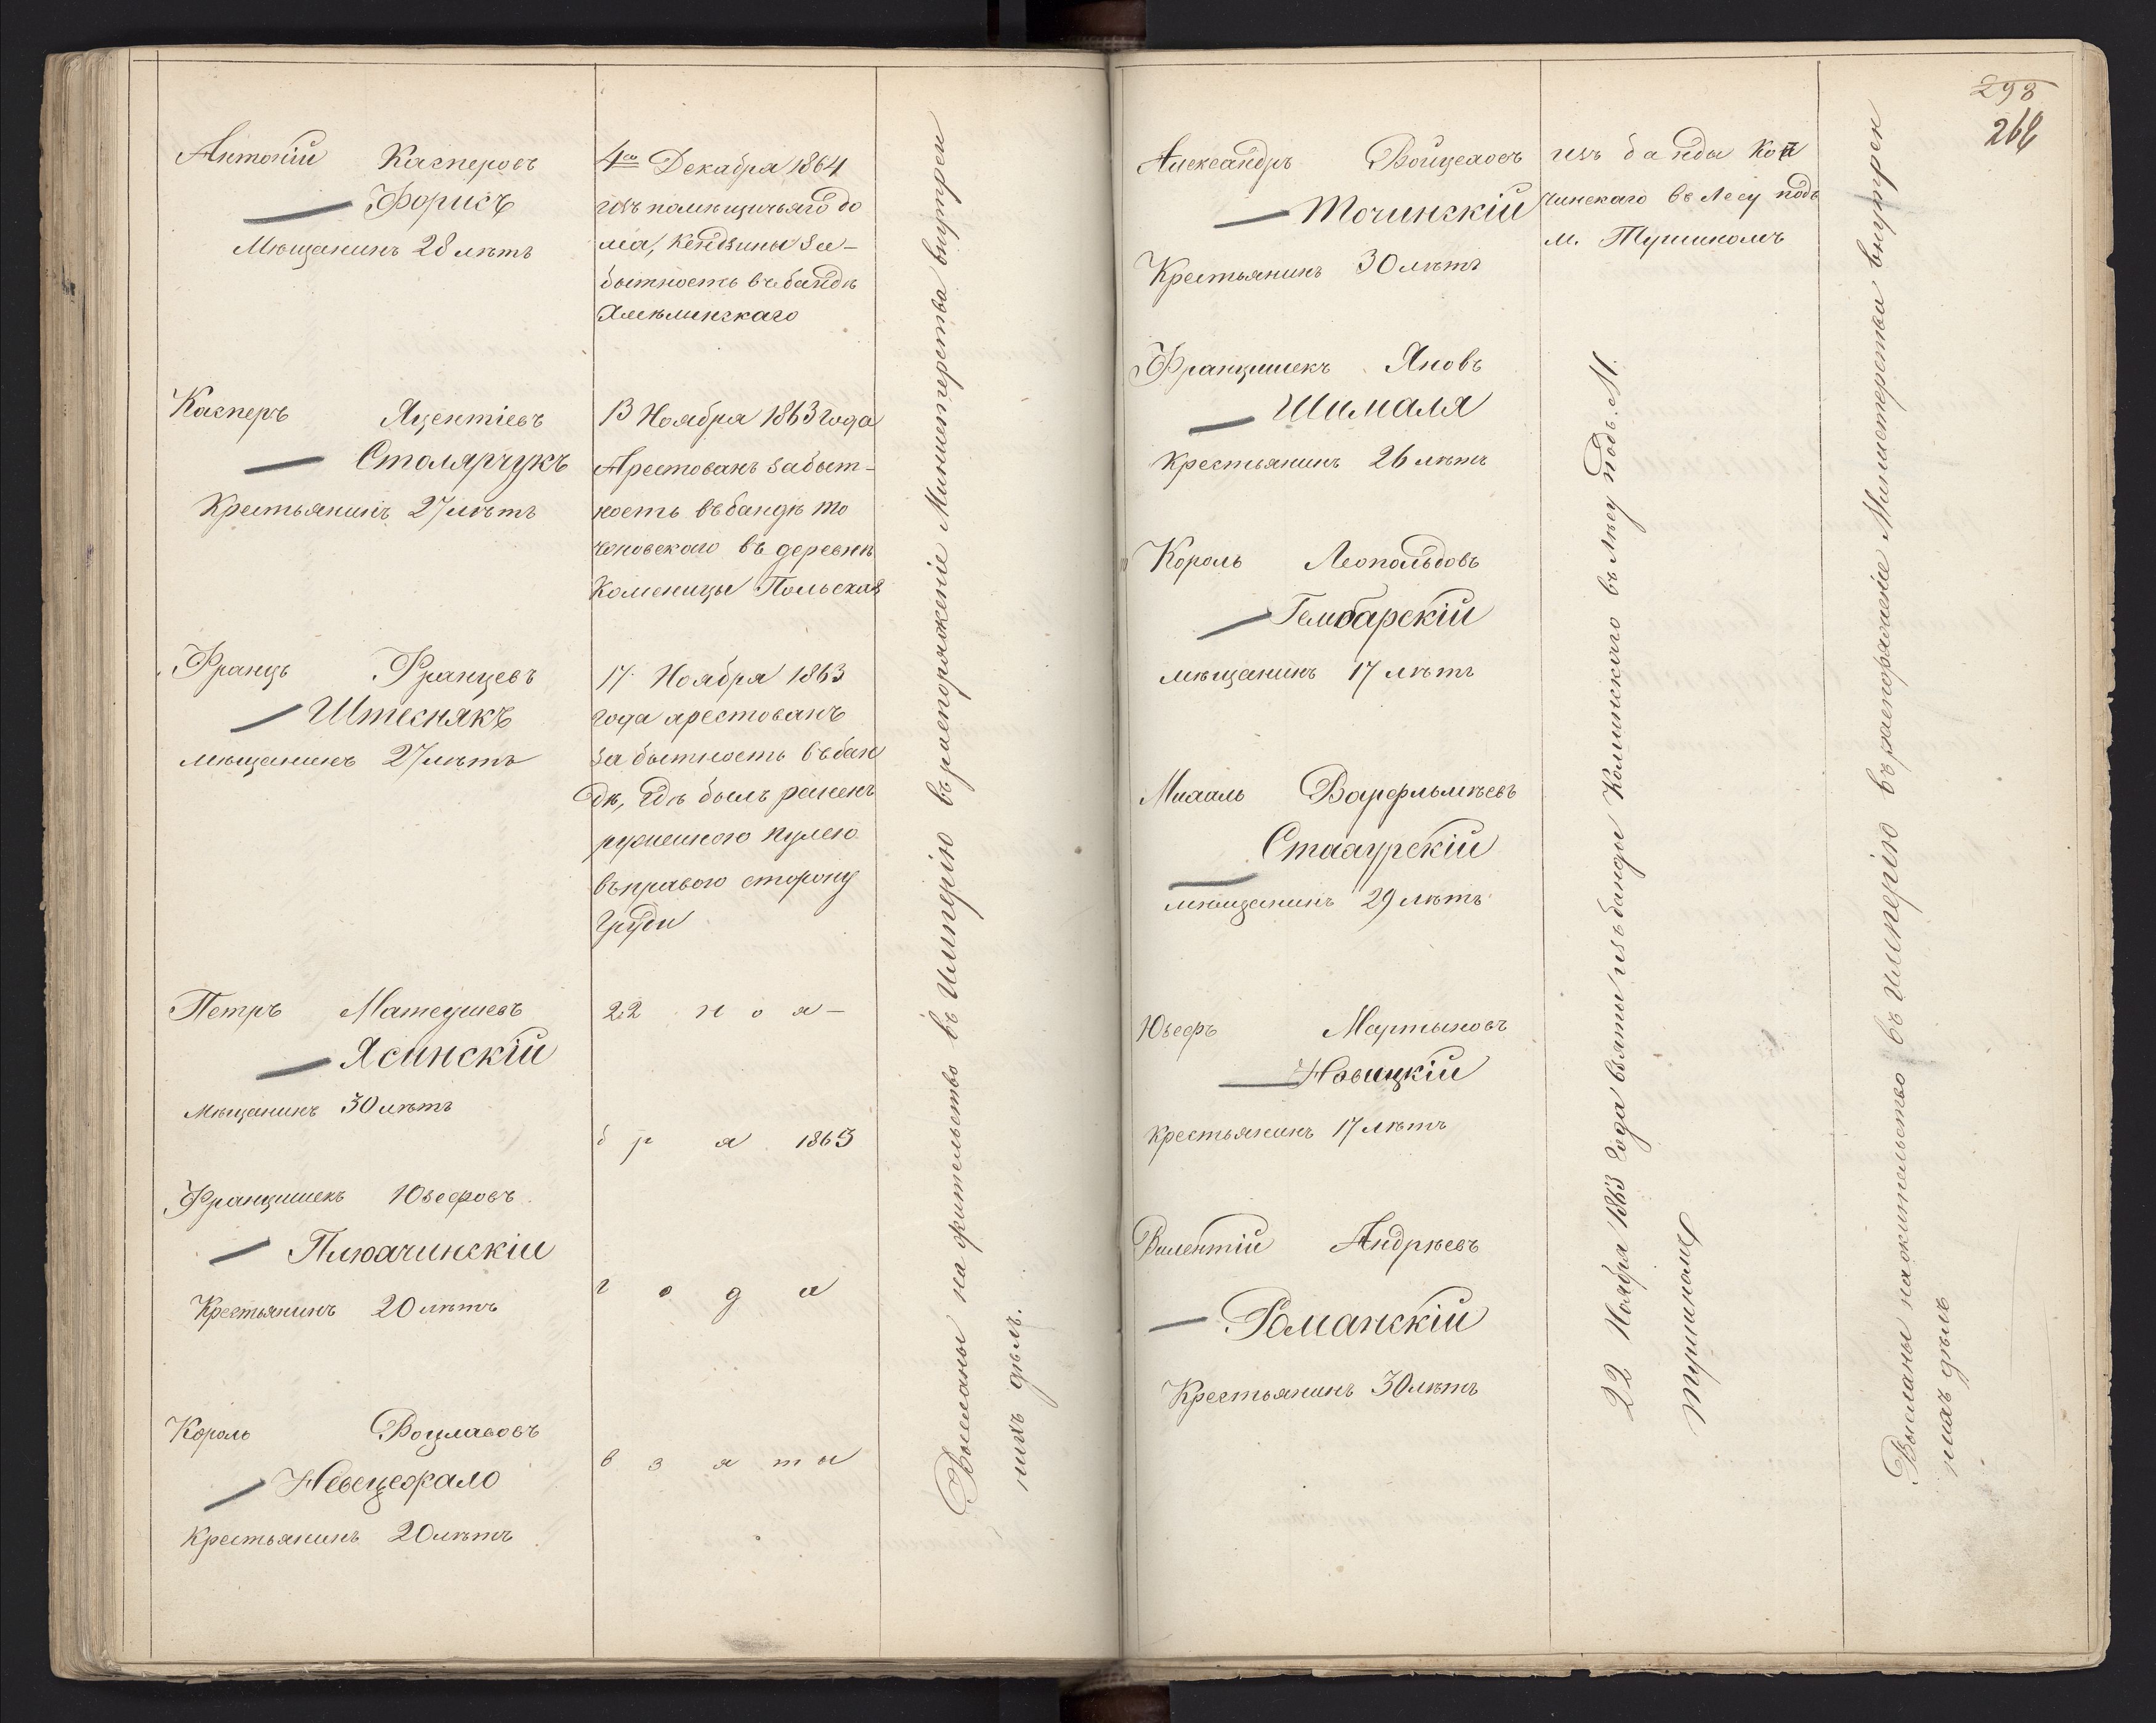 Антоній Касперовъ
Форисъ
Мѣщанинъ 28 лѣтъ
4го Декабря 1864
изъ помѣщичьяго до
ма, Кендзины за-
бытность въ бандѣ
Хмѣлинскаго
Касперъ Яцентіевъ
Столярчукъ
Крестьянинъ 27 лѣтъ
13 Ноября 1863 года
Арестованъ за быт-
ность въ бандѣ
въ деревнѣ
Коменицы Польская
Францъ Францевъ
Штеснякъ
мѣщанинъ 27 лѣтъ
17 Ноября 1863
года арестованъ
за бытность въ бан
дѣ, гдѣ былъ раненъ
ружейною пулею
въ правою сторону
груди
Петръ Матеушевъ
Ясинскій
Мѣщанинъ 30 лѣтъ
22 ноя-
бря 1863
Францишекъ Юзефовъ
Плюхчинскій
Крестьянинъ 20 лѣтъ
года
Кароль Воцлавовъ
Невецежало
Крестьянинъ 20 лѣтъ
взяты
Высланы на жительство въ Имперію въ распоряженіе Министерства внутрен
нихъ дѣлъ.
298
268
Александръ Войцеховъ
Точинскій
Крестьянинъ 30 лѣтъ
изъ банды
чинскаго въ лесу подъ
м. Тушиномъ
Францишекъ Яновъ
Шималя
Крестьянинъ 26 лѣтъ
Кароль Леопольдовъ
Гембарскій
мѣщанинъ 17 лѣтъ
Михаль Варфоломѣевъ
Стахурскій
мѣщанинъ 29 лѣтъ
Юзефъ Мартыновъ
Новицкій
крестьянинъ 17 лѣтъ
Валентій Андрѣевъ
Романскій
Крестьянинъ 30 лѣтъ
22 Ноября 1863 года взяты изъ банды Колинскаго въ лѣсу подъ. М.
Тушиномъ
Высланы на жительство въ имперію въ распоряженіе Министерства внутрен
нихъ дѣлъ